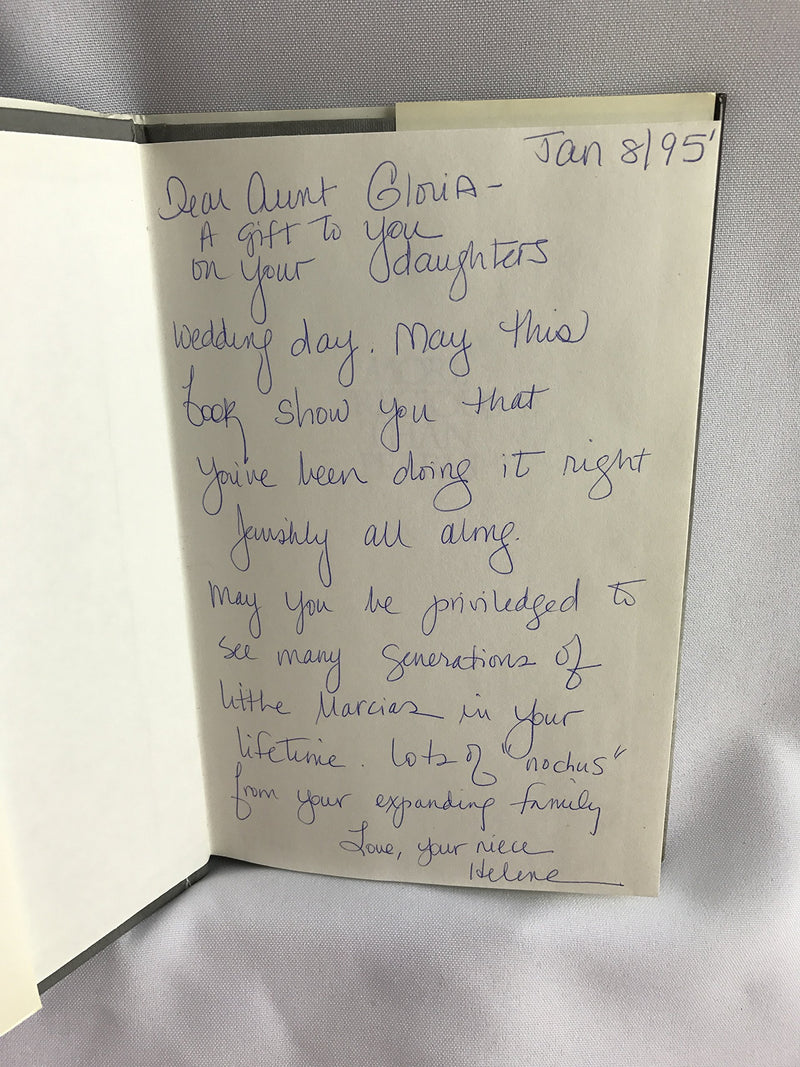 Jan 8/95'
Dear Aunt Gloria-
A gift to you
on your daughters
wedding day. May this
book show you that
you've been doing it right
Jewishly all along.
May you be priviledged to
see many generations of
little Marcias in your
lifetime. Lots of "nachus"
from your expanding family
Love, your niece
Helene